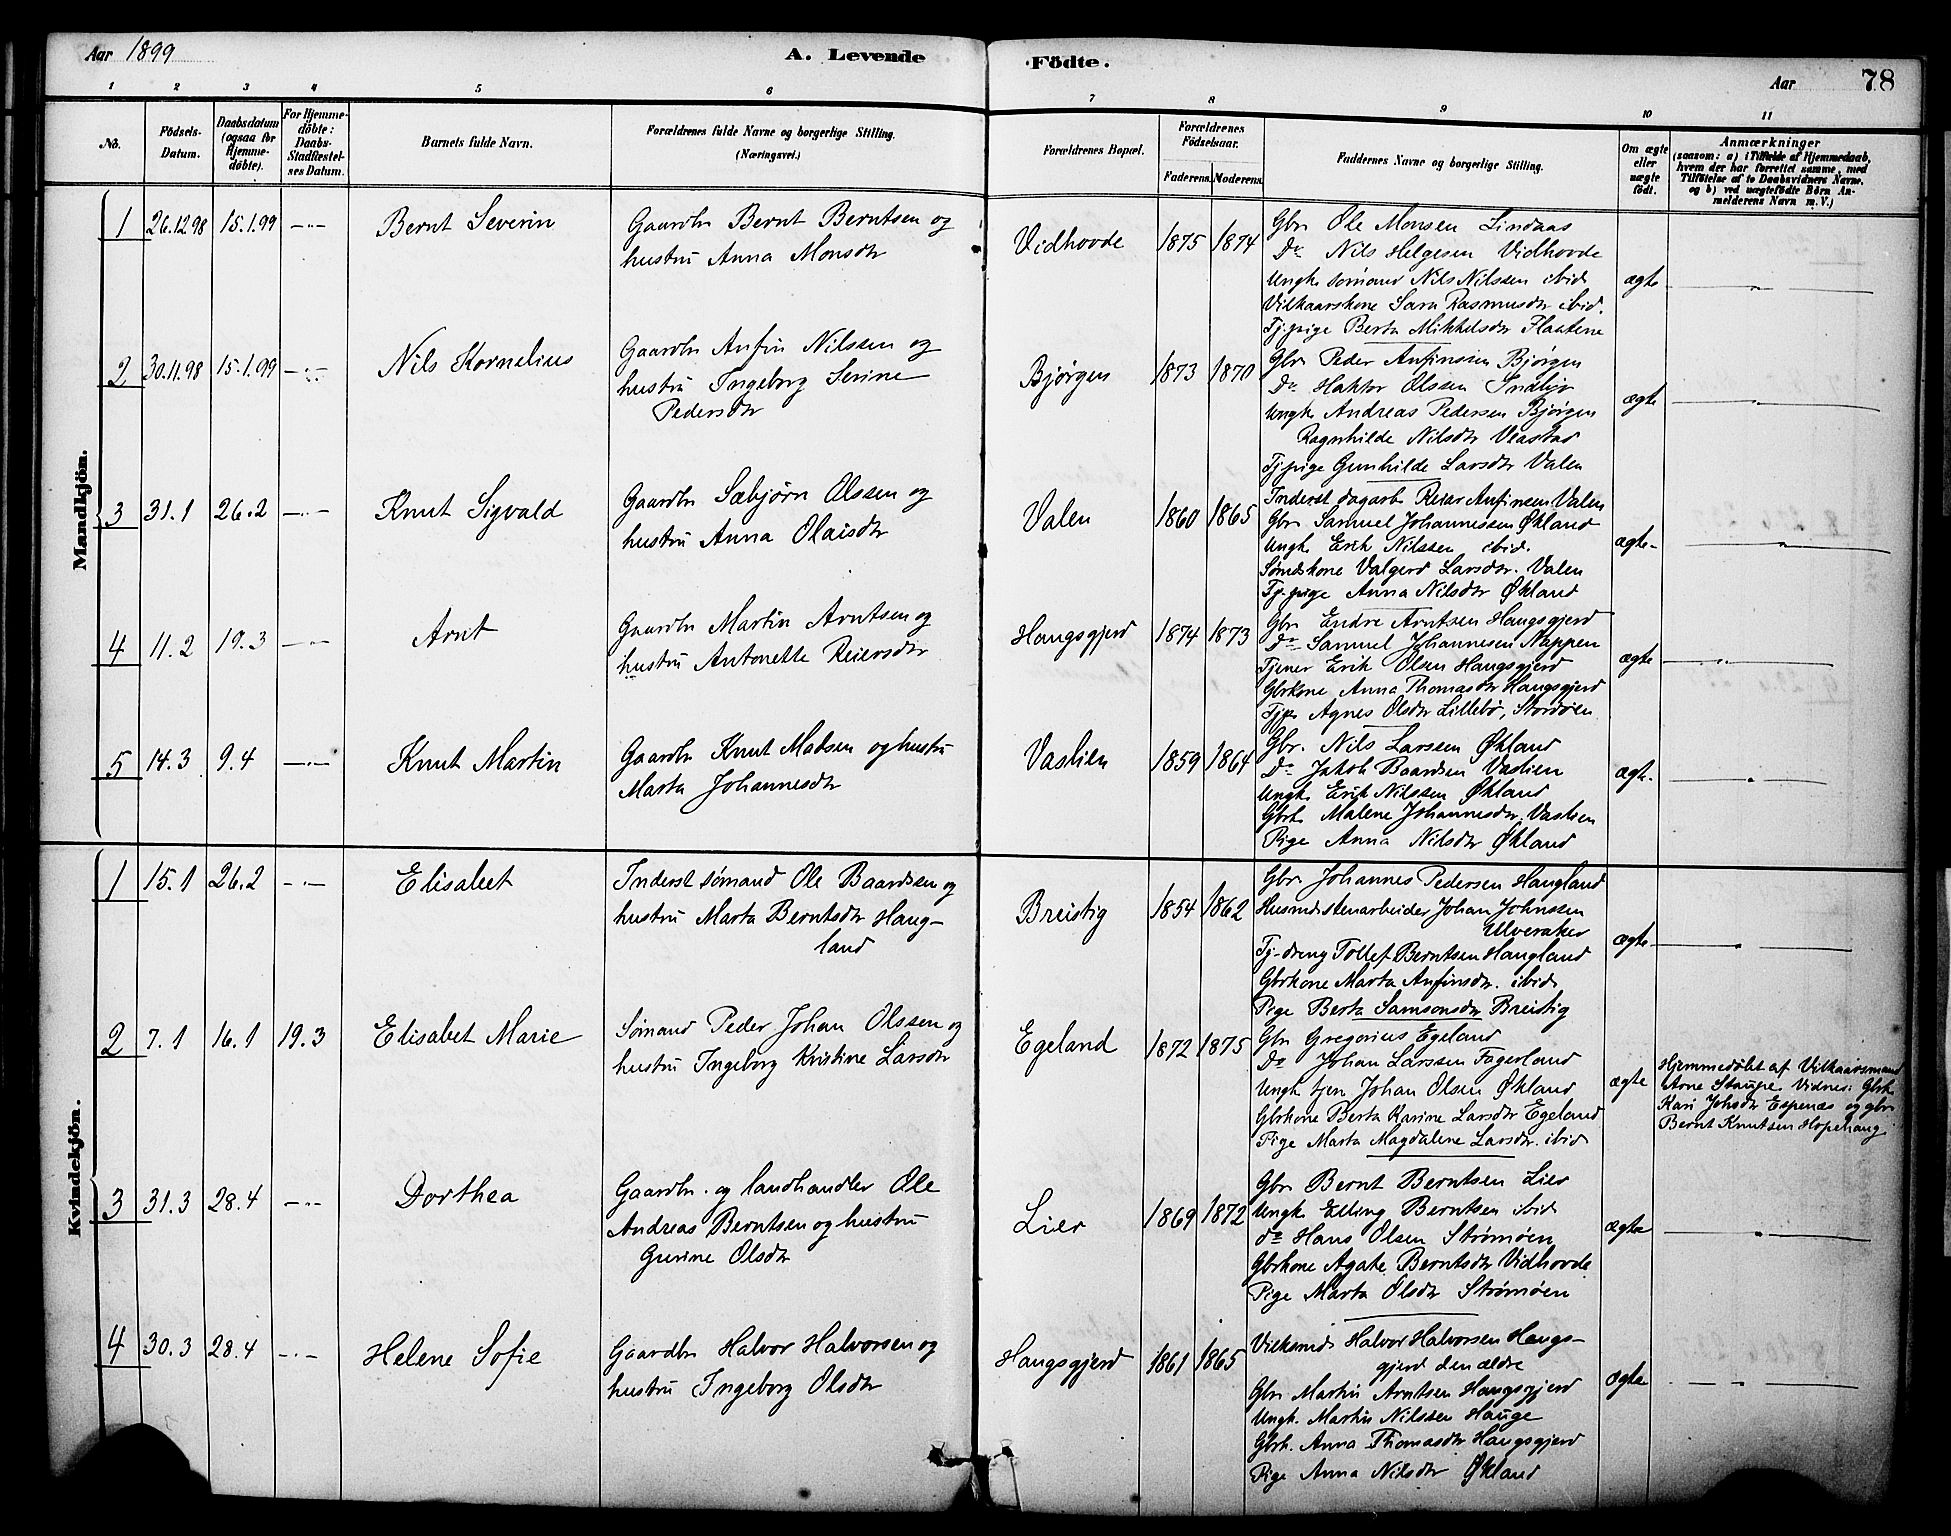 Aar 1899 A. Levende Födte. Aar 78
1 2 3 4 5 6 7 8 9 10 11
No.
Födsels-
Datum.
Daabsdatum
(ogsaa for
Hjemme-
döbte).
For Hjemme-
döbte:
Daabs-
Stadfæstel-
ses Datum.
Barnets fulde Navn.
Forældrenes fulde Navne og borgerlige Stilling.
(Næringsvei.)
Forældrenes Bopæl.
Forældrenes
Födselsaar.
Faderens. Moderens.
Faddernes Navne og borgerlige Stilling.
Om ægte
eller
uægte
födt.
Anmærkninger
(saasom: a) i Tilfælde af Hjemmedaab,
hvem der har forrettet samme, med
Tilföielse af to Daabsvidners Navne,
og b) ved uægtefödte Börn An-
melderens Navn m.V.)
Mandkjön.
1 26.12 98 15.1.99 Bernt Severin
Gaardbr Bernt Berntsen og
hustru Anna Monsdtr
Vidhovde 1875 1874
Gbr Ole Monsen Lindaas
Do Nils Helgesen Vidhovde
Ungk. sømand Nils Nilssen ibid
Vilkaarskone Sara Rasmusdtr ibid.
Tj.pige Berta Mikkelsdtr Flaatene
ægte
2 30.11.98 15.1.99 Nils Kornelius
Gaardbr Anfin Nilssen og
hustru Ingeborg Serine
Pedersdtr
Bjørgen 1873 1870
Gbr Peder Anfinssen Bjørgen
Do Haktor Olssen Indlijo
Ungk. Andreas Pedersen Bjørgen
Ragnhilde Nilsdtr
Tj.pige Gunhilde Larsdtr Valen
ægte
3 31.1 26.2 Knut Sigvald
Gaardbr Sæbjørn Olssen og
hustru Anna Olaisdtr
Valen 1860 1865
Inderst dagarb. Reiar Anfinsen Valen
Gbr Samuel Johannessen Økland
Ungk. Erik Nilssen ibid.
Sømdskone Valgerd Larsdtr. Valen
Tj.pige Anna Nilsdtr Økland
ægte
4 11.2 19.3 Arnt
Gaardbr Martin Arntsen og
hustru Antonette Reiersdtr
Haugsgjerd 1874 1873
Gbr Endre Arntsen Haugsgjerd
Do Samuel Johannesen Nappen
Tjener Erik Olsen Haugsgjerd
Gbrkone Anna Thomasdtr Haugsgjerd
Tjp. Agnes Olsdtr Lillebø, Stordøen
ægte
5 14.3 9.4 Knut Martin
Gaardbr Knut Madsen og hustru
Marta Johannesdtr
Vaslien 1859 1864
Gbr. Nils Larssen Økland
Do Jakob Baardsen Vaslien
Ungk. Erik Nilssen Økland
Gbrk. Malene Johannesdtr. Vaslien
Pige Anna Nilsdtr Økland
ægte.
Kvindekjön.
1 15.1 26.2 Elisabet
Inderst sømand Ole Baardsen og
hustru Marta Berntsdtr Haug-
land
Breistig 1854 1862
Gbr Johannes Pedersen Haugland
Husmd. stenarbeider Johan Johnssen
Ulveraker
Tj-dreng Tollef Berntsen Haugland
Gbrkone Marta Anfinsdtr. ibid
Pige Berta Samsonsdtr Breistig
ægte
2 7.1 16.1 19.3 Elisabet Marie
Sømand Peder Johan Olssen og
hustru Ingeborg Kristine Larsdtr
Egeland 1872 1875
Gbr Gregorius Egeland
Do Johan Larssen Fagerland
Ungk tjen Johan Olsen Økland
Gbrkone Berta Karine Larsdtr Egeland
Pige Marta Magdalene Larsdtr. ibid
ægte
Hjemmedøbt af Vilkaarsmand
Arne Staupe Vidnes: Gbrk
Kari Johsdtr Espenæs og gbr
Bernt Knutsen Hopehaug
3 31.3 28.4 Dorthea
Gaardbr. og landhandler Ole
Andreas Berntsen og hustru
Gurine Olsdtr
Lier 1869 1872
Gbr Bernt Berntsen Lier
Ungk Elling Berntsen ibid
do Hans Olsen Strømøen
Gbrkone Agate Berntsdtr Vidhovde
Pige Marta Olsdtr Strømøen
ægte
4 30.3 28.4 Helene Sofie
Gaardbr Halvor Halvorsen og
hustru Ingeborg Olsdtr
Haugsgjerd 1861 1865
Vilksmd. Halvor Halvorsen Haugs-
gjerd den ældre
Gbr Martin Arntsen Haugsgjerd
Ungk. Martin Nilssen Hauge
Gbrk. Anna Thomasdtr Haugsgjerd
Pige Anna Nilsdtr Økland
ægte